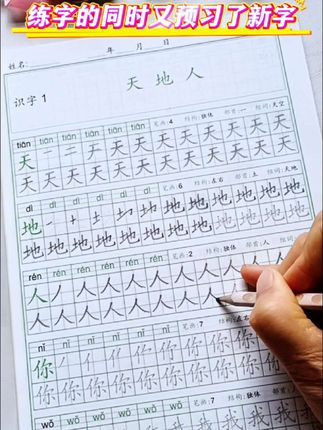 练字的同时又预习了新字
姓名: 年 月 日
天 地 人
识字 1
tiān tiān tiān tiān tiān 笔画:4 结构:独体 部首:一 组词:天空
天 一 二 天 天 天 天 天 天 天 天
天 天 天 天 天 天 天 天 天 天 天
dì dì dì dì dì 笔画:6 结构:左右 部首:土 组词:天地
地 一 十 土 地 地 地 地 地 地
地 地 地 地 地 地 地 地 地
rén rén rén rén rén 笔画:2 结构:独体 部首:人 组词
人 丿 人 人 人 人 人 人 人 人
人 人 人 人 人 人 人 人
nǐ nǐ nǐ nǐ nǐ 笔画:7 结构:左右
你 你 你 你 你 你
你 你 你 你 你 你 你
wǒ wǒ wǒ wǒ wǒ 笔画:7
我 我 我